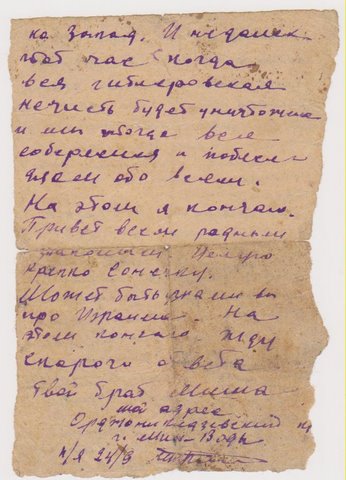 на Запад. И недалек
тот час когда
вся гитлеровская
нечисть будет уничтожена
и мы тогда все
соберемся и побесе
дуем обо всем.
На этом я кончаю.
Привет всем родным
знакомым Целую
крепко Сонечку.
Может быть знаешь
про Израиля. На
этом кончаю. Жду
скорого ответа
твой брат Миша
мой адрес
Орджоникидзевский
г. Мин-Воды
п/я 24/8